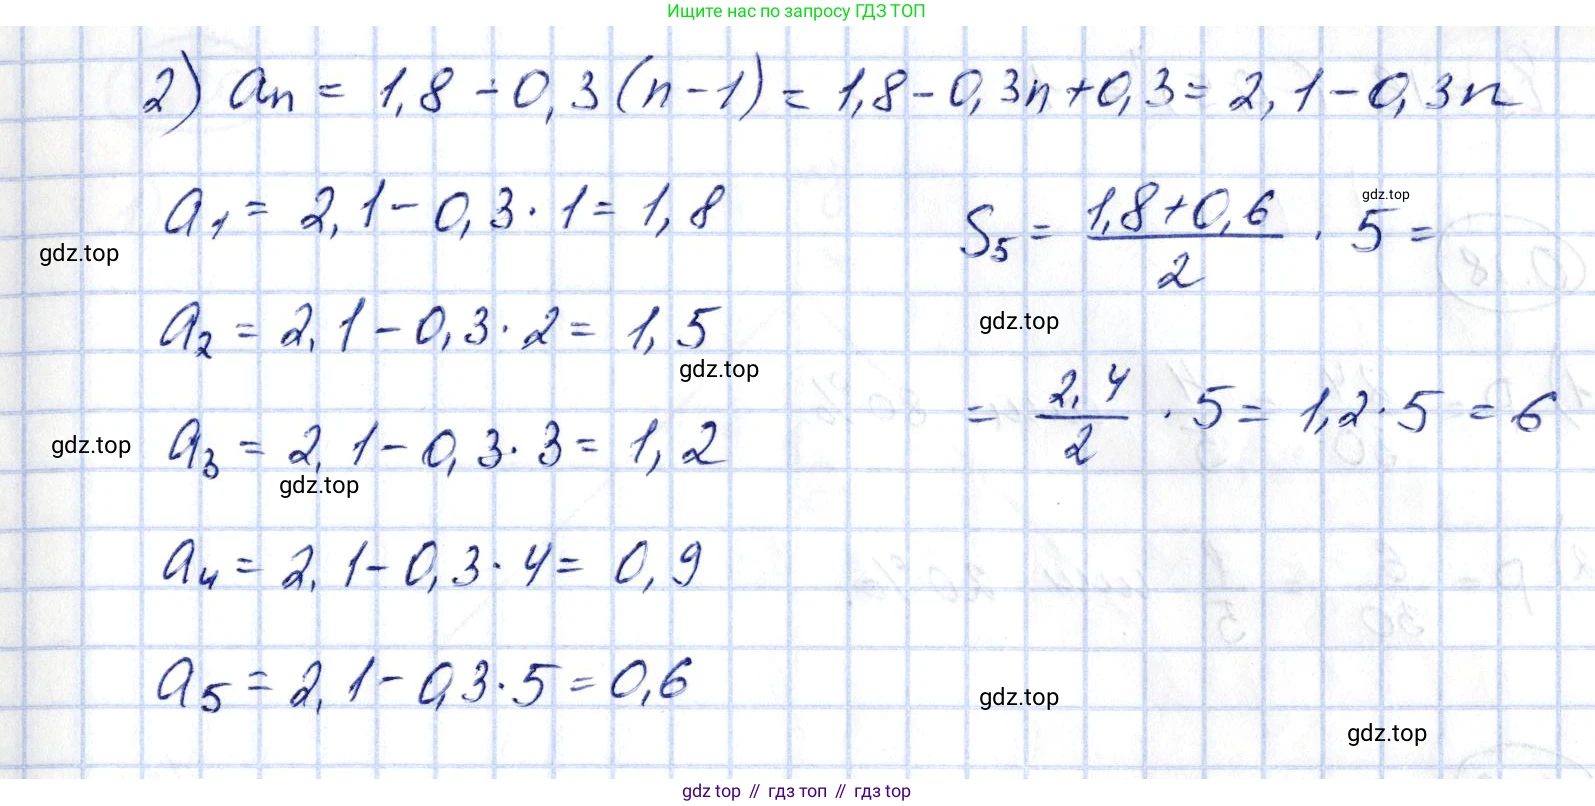 Ищите нас по запросу ГДЗ ТОП
2) aₙ = 1,8 - 0,3(n-1) = 1,8 - 0,3n + 0,3 = 2,1 - 0,3n
a₁ = 2,1 - 0,3 · 1 = 1,8
gdz.top
S₅ = (1,8+0,6)/2 · 5 =
gdz.top
a₂ = 2,1 - 0,3 · 2 = 1,5
gdz.top
gdz.top
= 2,4/2 · 5 = 1,2 · 5 = 6
a₃ = 2,1 - 0,3 · 3 = 1,2
gdz.top
gdz.top
a₄ = 2,1 - 0,3 · 4 = 0,9
a₅ = 2,1 - 0,3 · 5 = 0,6
gdz.top
gdz.top
gdz top // гдз топ // гдз top